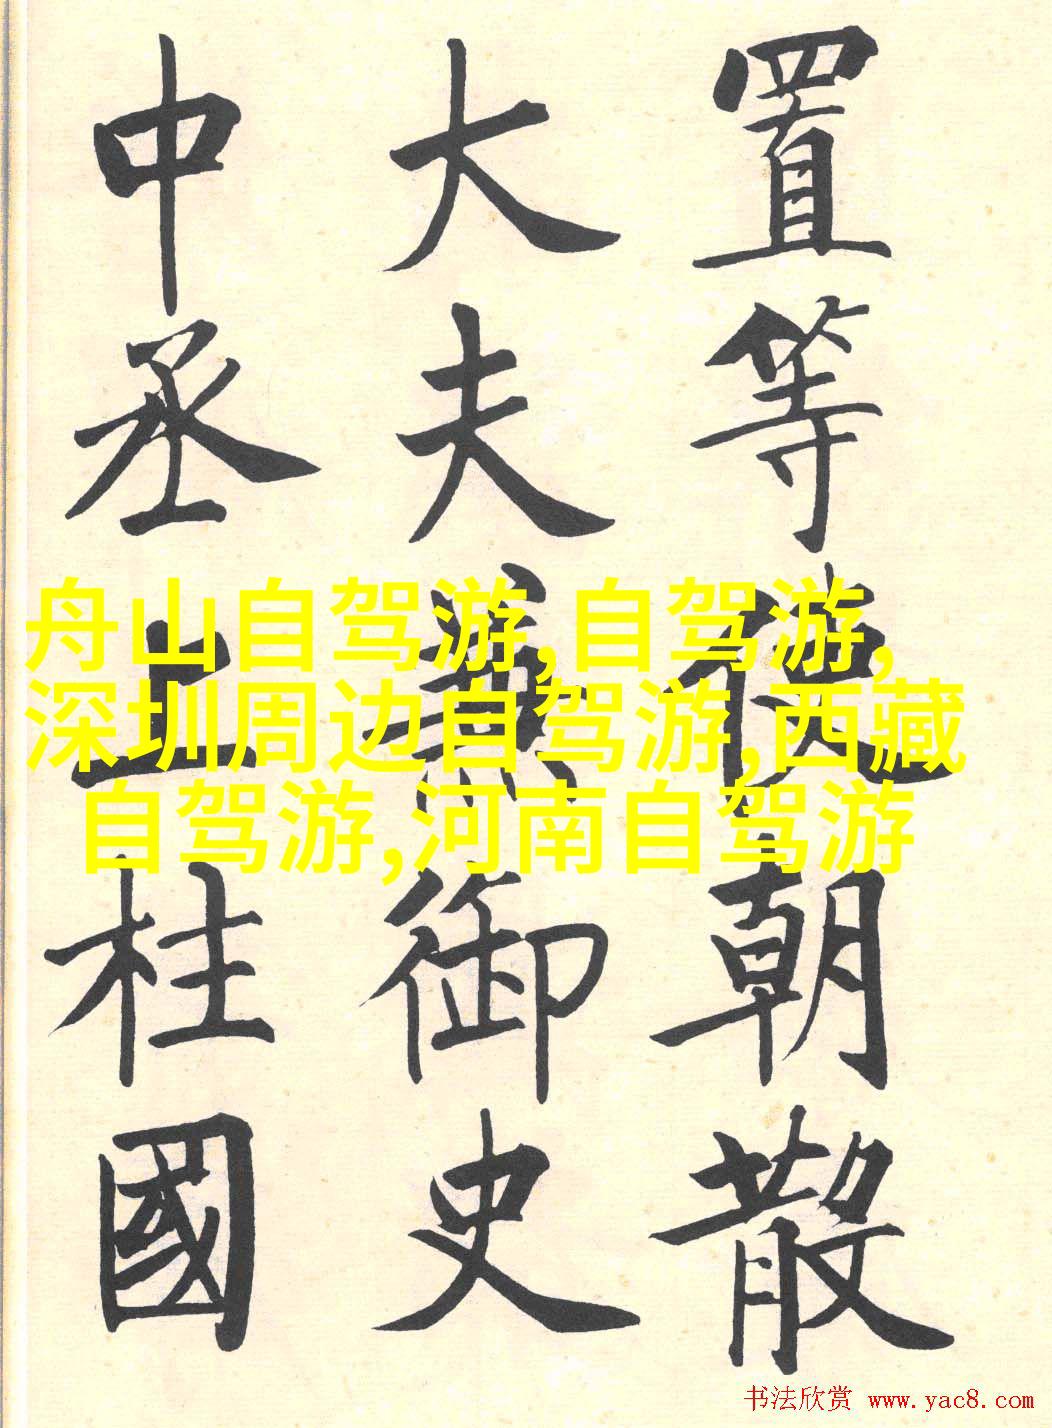 置等使朝散
大夫兼御史
中丞上柱國
舟山自驾游,自驾游,
深圳周边自驾游,西藏
自驾游,河南自驾游
书法欣赏 www.yac8.com